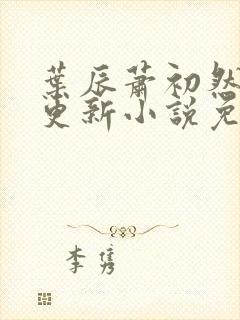 葉辰蕭初然
更新小說免
李隽